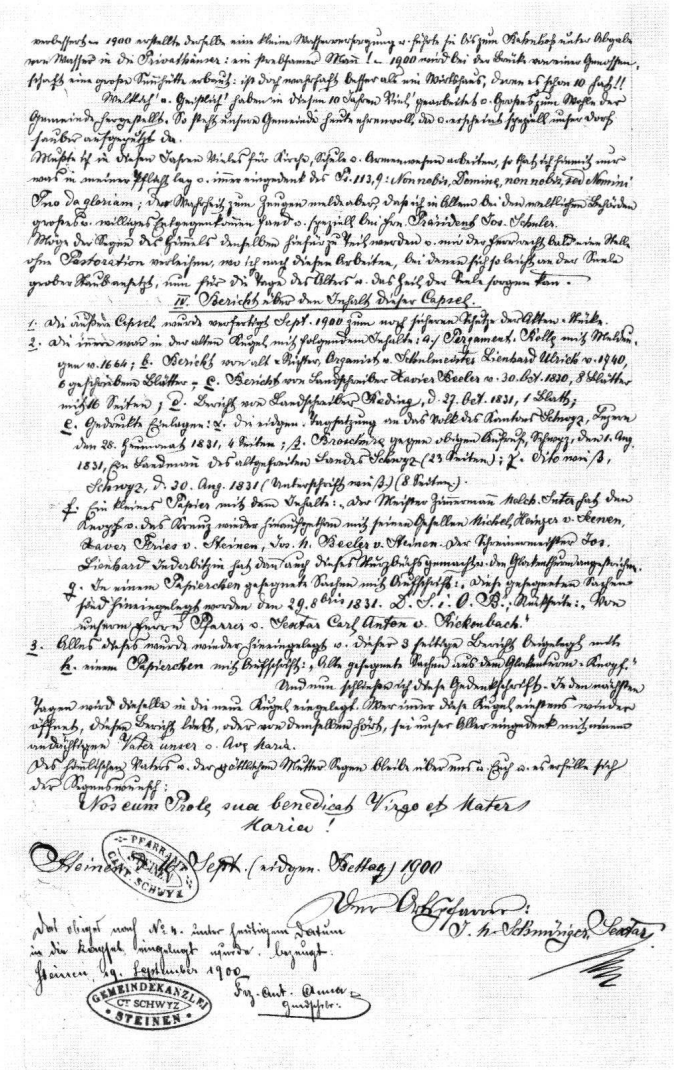 verbessert – 1900 erstellte derselbe eine kleine Wasserversorgung u. führte sie bis zum Bahnhof unter Abgabe
von Wasser in die Privathäuser: ein strebsamer Mann! – 1900 wird bei der Brücke von einer Genossen-
schaft eine große Sennhütte erbaut: ist doch wahrhaft besser als ein Wirtshaus, deren es schon 10 hat!!
Weltlich u. Geistlich haben in diesen 10 Jahren Viel gearbeitet u. Großes zum Wohle der
Gemeinde hergestellt. So steht unsere Gemeinde heute ehrenvoll da u. erscheint speziell unser Dorf
sauber ausgeputzt da.
Mußte ich in diesen Jahren Vieles für Kirche, Schule u. Armenwesen arbeiten, so that ich hiemit nur
was in meiner Pflicht lag u. immer eingedenk des Ps. 113,9: Non nobis, Domine, non nobis, sed Nomini
Tuo da gloriam; der Wahrheit zum Zeugen melde aber, daß ich in Allem bei den weltlichen Behörden
großes u. williges Entgegenkommen fand u. speziell bei Hrn. Präsident Jos. Schuler.
Möge der Segen des Himels denselben hiefür zu Teil werden u. mir der Herr recht bald eine Stelle
ohne Pastoration verleihen, wo ich nach diesen Arbeiten, bei denen sich so leicht an der Seele
grober Staub ansetzt, nun für die Tage des Alters u. das Heil der Seele sorgen kan. –
IV. Bericht über den Inhalt dieser Capsel.
1. Die äußere Capsel wurde verfertigt Sept. 1900 zum noch sicheren Schutze der Akten-Stücke.
2. Die innere war in der alten Kugel mit folgendem Inhalte: a, Pergament-Rolle mit Meldun-
gen v. 1664; b. Bericht von alt-Richter, Organist u. Schulmeister Lienhard Ulrich v.
6 geschriebene Blätter – c. Bericht von Landschreiber Xavier Beeler v. 30. Oct. 1830, 8 Blätter
mit 16 Seiten; d. Bericht von Landschreiber Reding, d. 27. Oct. 1831, 1 Blatt;
e. Gedruckte Einlagen: α. die eidgen. Tagsatzung an das Volk des Kantons Schwyz, Luzern
den 28. Heumonat 1831, 4 Seiten; β. Broschüre gegen obigen Aufruf, Schwyz, den 1. Aug.
1831, Ein Landmann des altgefreiten Landes Schwyz (23 Seiten); γ. Dito
Schwyz, d. 30. Aug. 1831 (Unterschrift (8 Seiten).
f. Ein kleines Papier mit dem Inhalte: „Der Meister Zimmermann Melch. Suter hat den
Knopf u. das Kreuz wieder hinaufgethan mit seinen Gesellen Michel, Heinzer v.
Xaver Fries v. Steinen, Jos. M. Beeler v. Steinen. Der Schreinermeister Jos.
Lienhard Inderbitzin hat dan auch dieses gemacht u. den Glokenthurm angestrichen.
g. In einem Papierchen gesegnete Sachen mit Aufschrift: „Diese gesegneten Sachen
sind hineingelegt worden den 29. 8bris 1831. D. S. i. O. B.; Rückseite: „Von
unserm Herrn Pfarrer u. Sextar Carl Anton v. Rickenbach."
3. Alles dieses wurde wieder hineingelegt u. dieser 3 seitige Bericht beigelegt mit
h. einem Papierchen mit Aufschrift: „Alte gesegnete Sachen aus dem Glokenturm-Knopf."
Und nun schließe ich diese Gedenkschrift. In den nächsten
Tagen wird dieselbe in die neue Kugel eingelegt. Wer imer diese Kugel einstens wieder
öffnet, diesen Bericht liest, oder von demselben hört, sei unser Aller eingedenk mit einem
andächtigen Vater unser u. Ave Maria.
Des himlischen Vaters u. der göttlichen Mutter Segen bleibe über uns u. Euch u. es erfülle sich
der Segenswunsch:
Nos cum Prole sua benedicat Virgo et Mater
Maria!
PFARRAMT STEINEN CT SCHWYZ
Steinen, Sept. (eidgen. Bettag) 1900
Der Ortspfarrer:
Sextar.
Das obiges nach No 4. unter heutigem Datum
in die Kapsel eingelegt wurde, bezeugt:
Steinen, 29. September 1900
Frz. Ant.
GEMEINDEKANZLEI
CT SCHWYZ
STEINEN